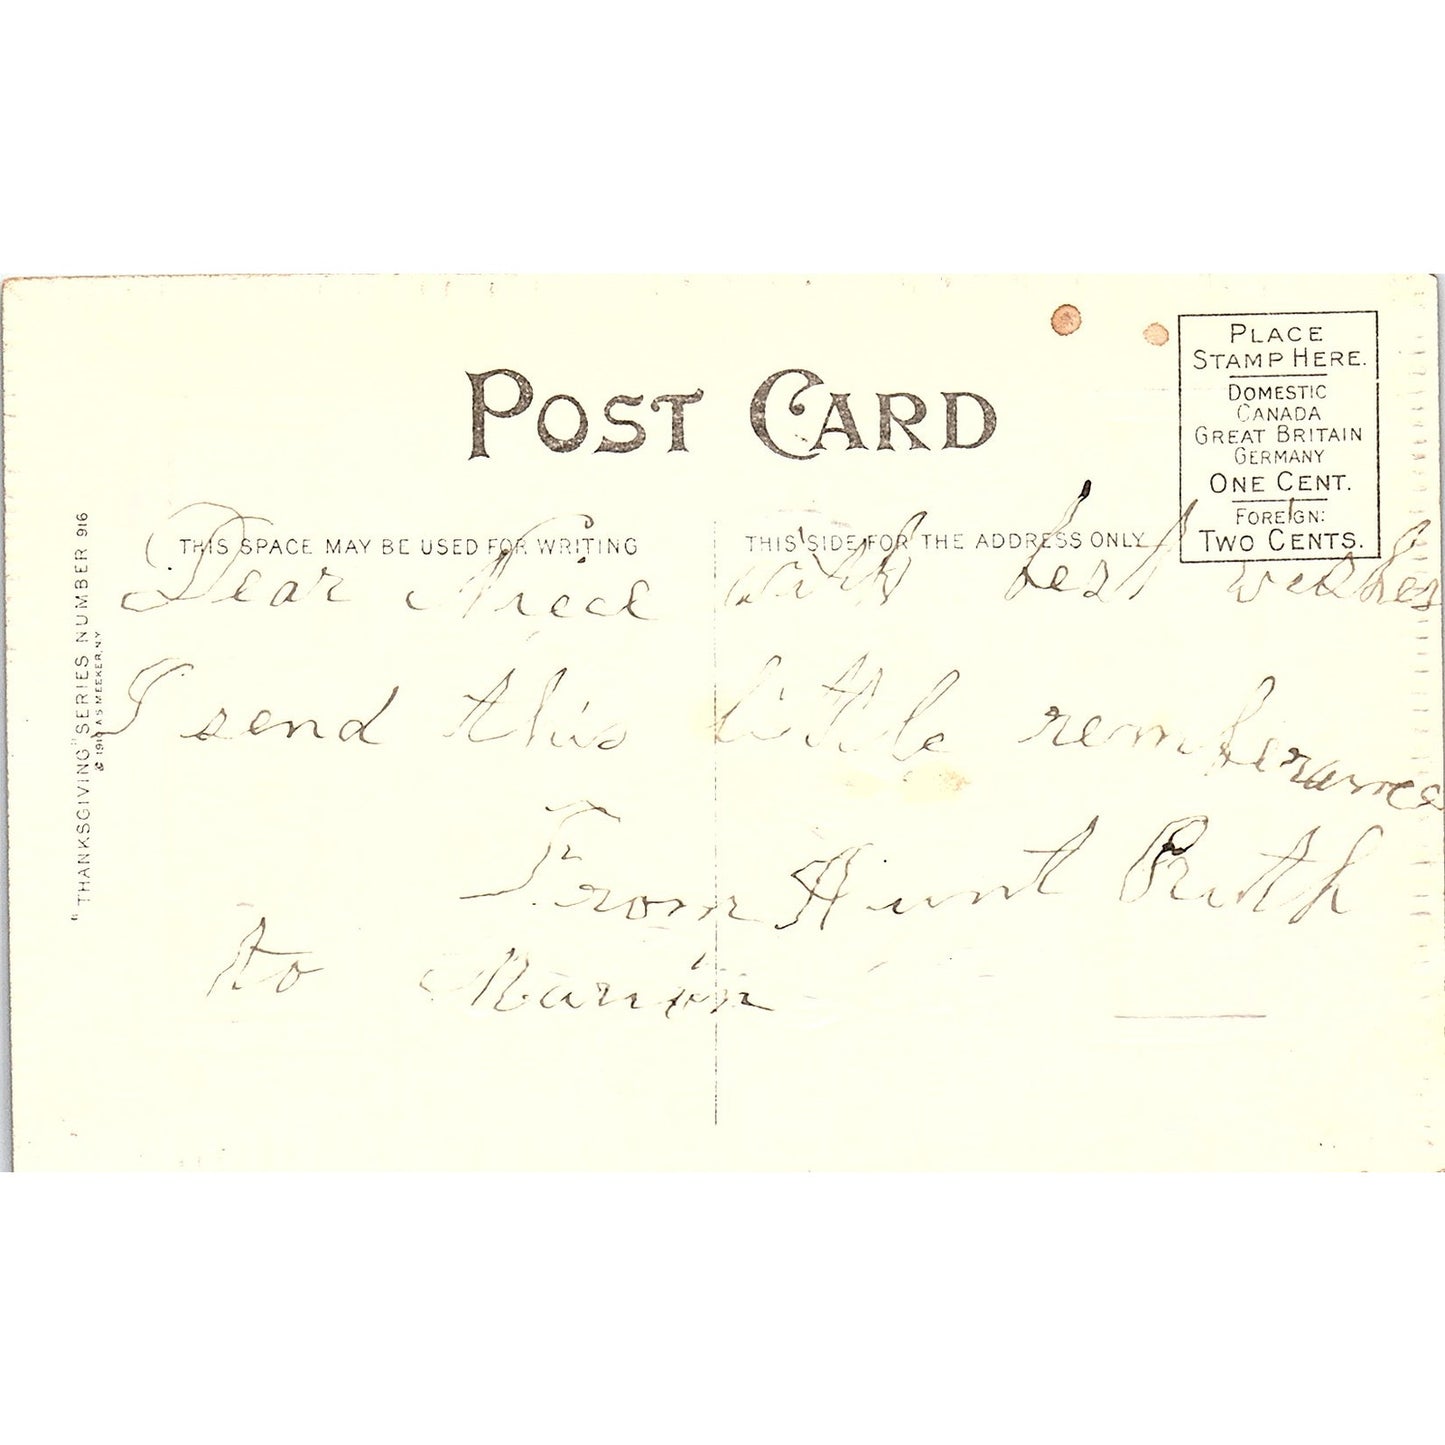 POST CARD
PLACE
STAMP HERE.
DOMESTIC
CANADA
GREAT BRITAIN
GERMANY
ONE CENT.
FOREIGN:
TWO CENTS.
THIS SPACE MAY BE USED FOR WRITING
THIS SIDE FOR THE ADDRESS ONLY
"THANKSGIVING" SERIES NUMBER 916
A S MEEKER, NY
Dear Niece with best wishes
I send this little remberance
From Aunt Ruth
to Marion